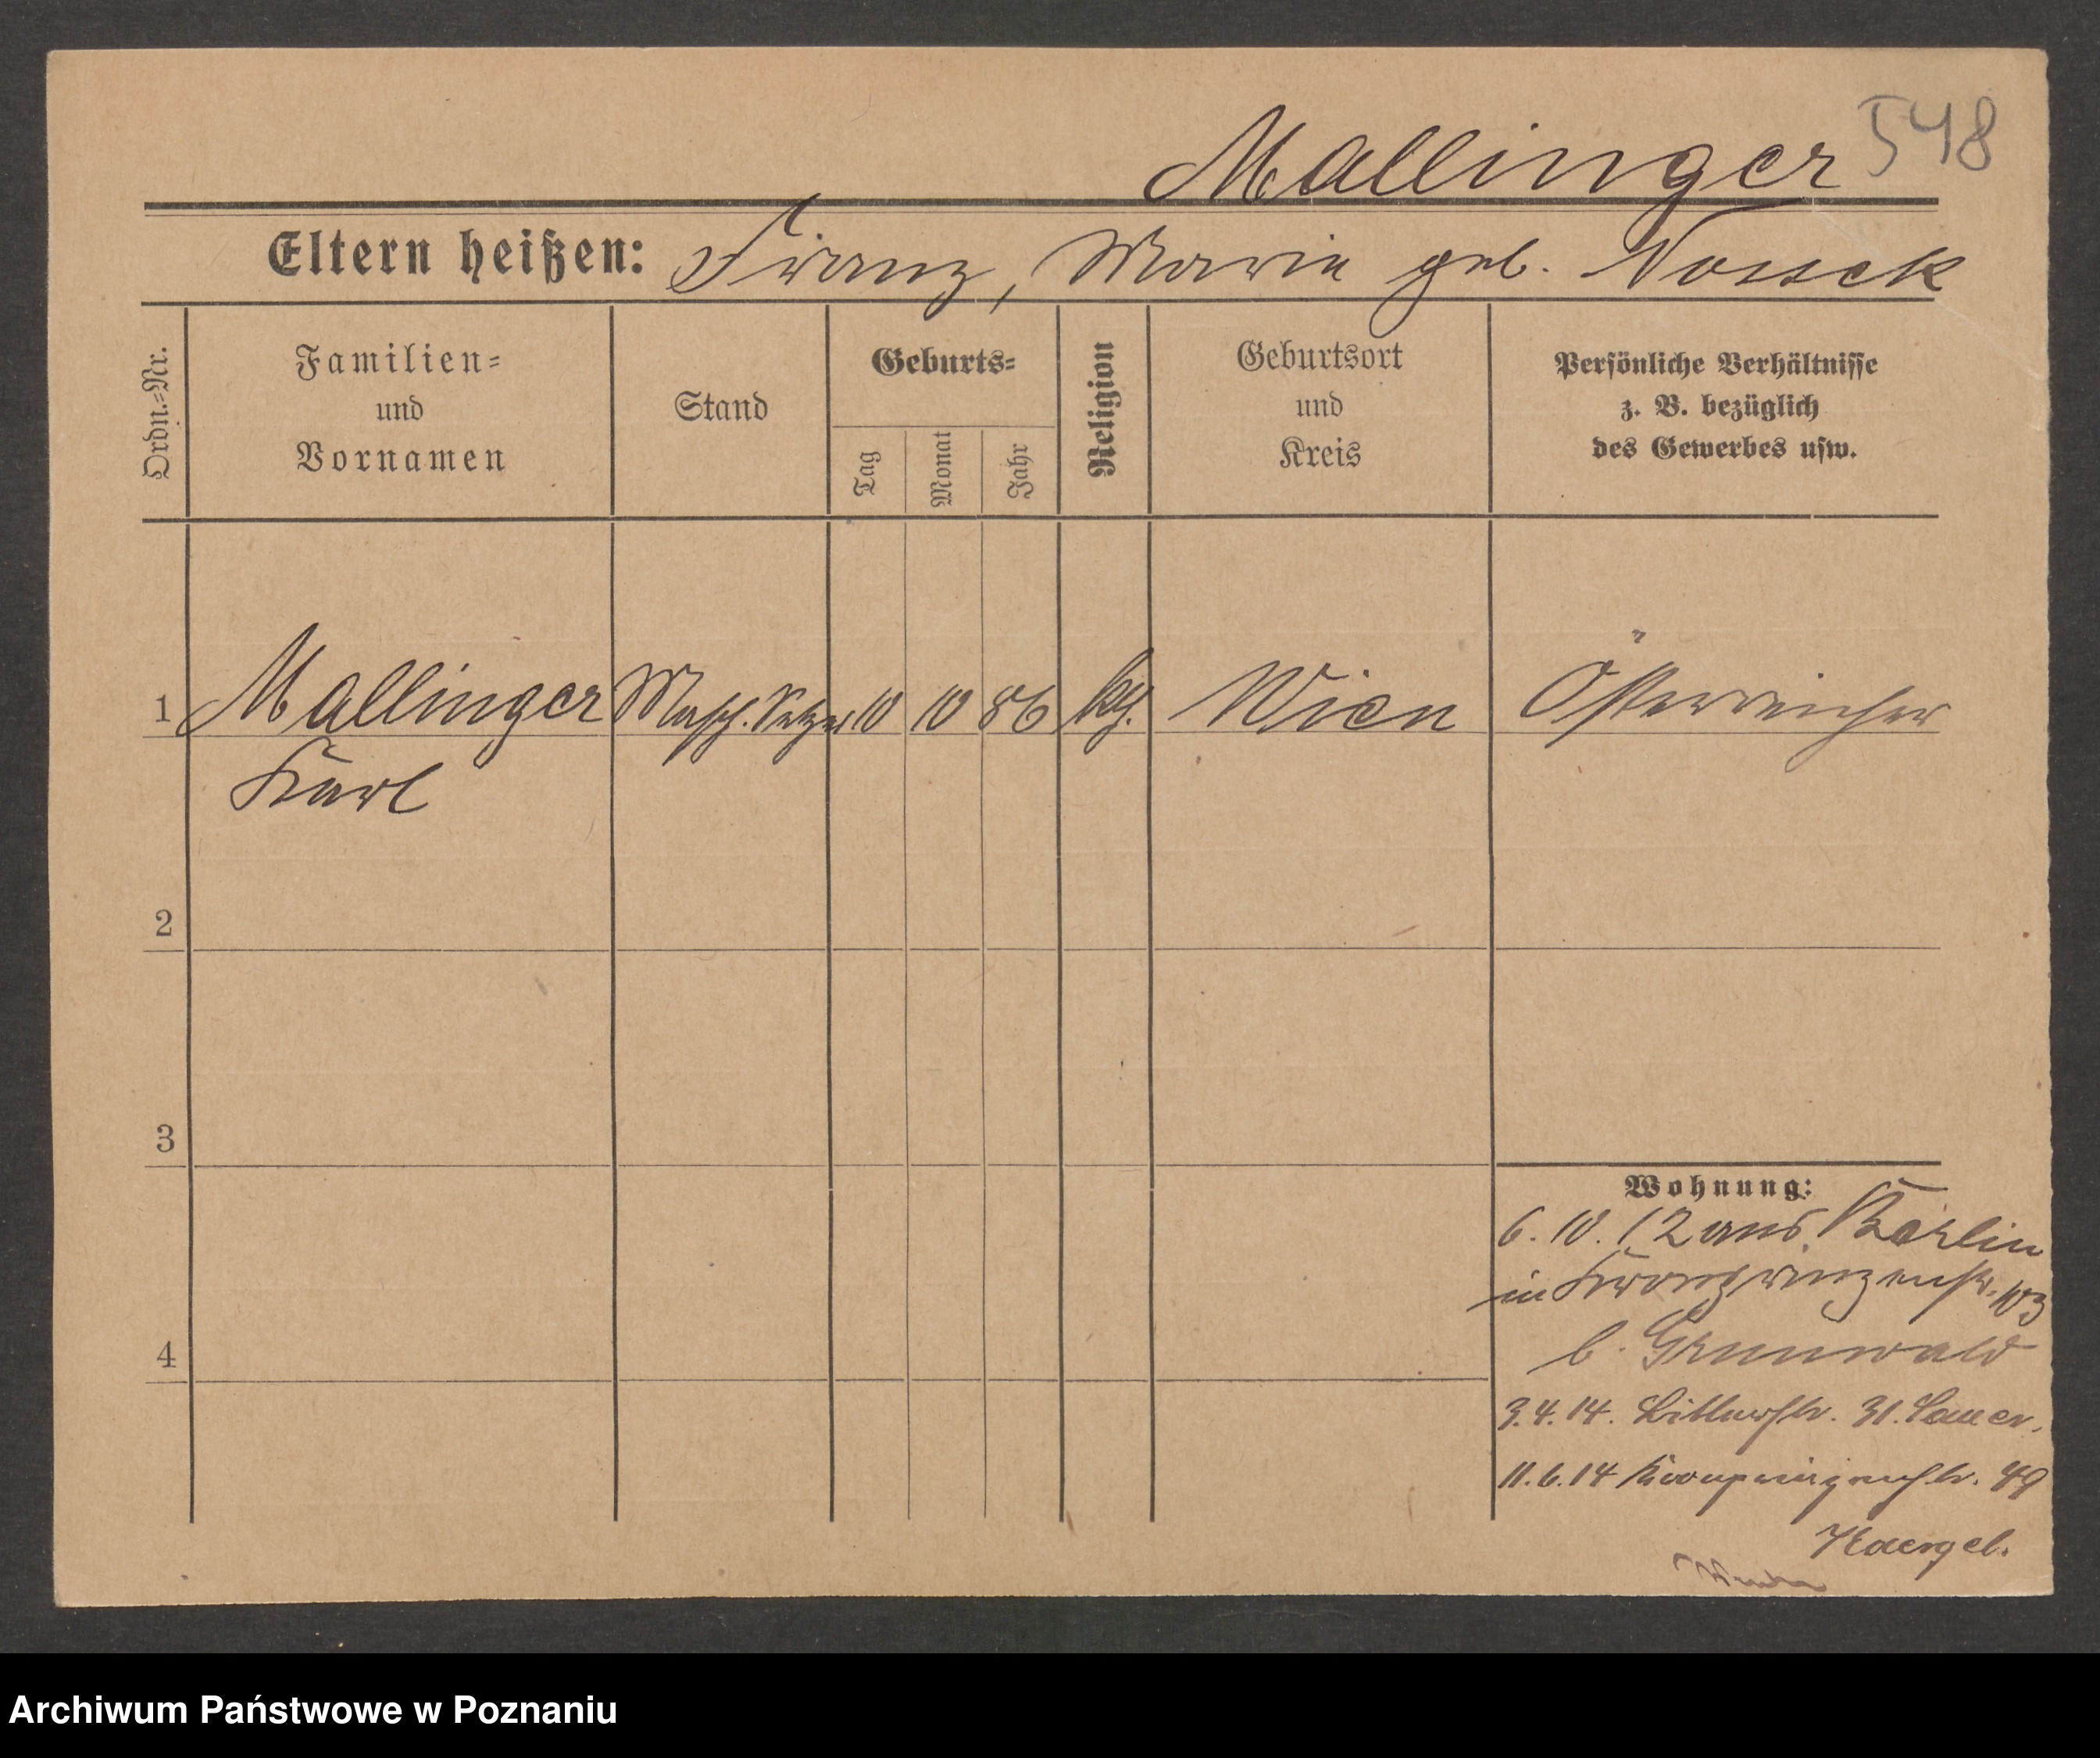 Mallinger 548
Eltern heißen: Franz, Maria geb. Nossek
Ordn.-Nr.
Familien-
und
Vornamen
Stand
Geburts-
Tag
Monat
Jahr
Religion
Geburtsort
und
Kreis
Persönliche Verhältnisse
z. B. bezüglich
des Gewerbes usw.
1 Mallinger Masch. Setzer 10 10 86 kth. Wien Österreicher
Karl
2
3
4
Wohnung:
6. 10. 12 aus Berlin
in Kronprinzenstr. 103
b. Grunwald
3.4.14. 31. Sauer.
11.6.14 Kronprinzenstr. 49
Archiwum Państwowe w Poznaniu